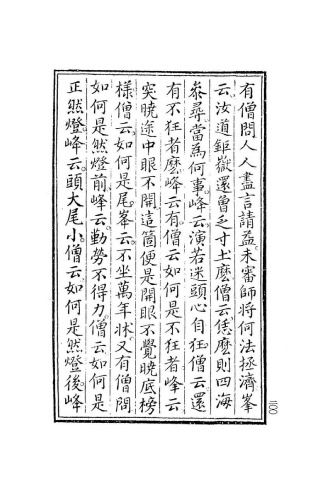 有僧問人人盡言請益未審師將何法拯濟峯
云汝道鉅嶽還曾乏寸土麽僧云恁麽則四海
叅尋當為何事峰云演若迷頭心自狂僧云還
有不狂者麽峰云有僧云如何是不狂者峰云
突曉途中眼不開這箇便是開眼不覺曉底榜
樣僧云如何是尾峯云不坐萬年牀又有僧問
如何是然燈前峰云勤勢不得力僧云如何是
正然燈峰云頭大尾小僧云如何是然燈後峰
三〇〇